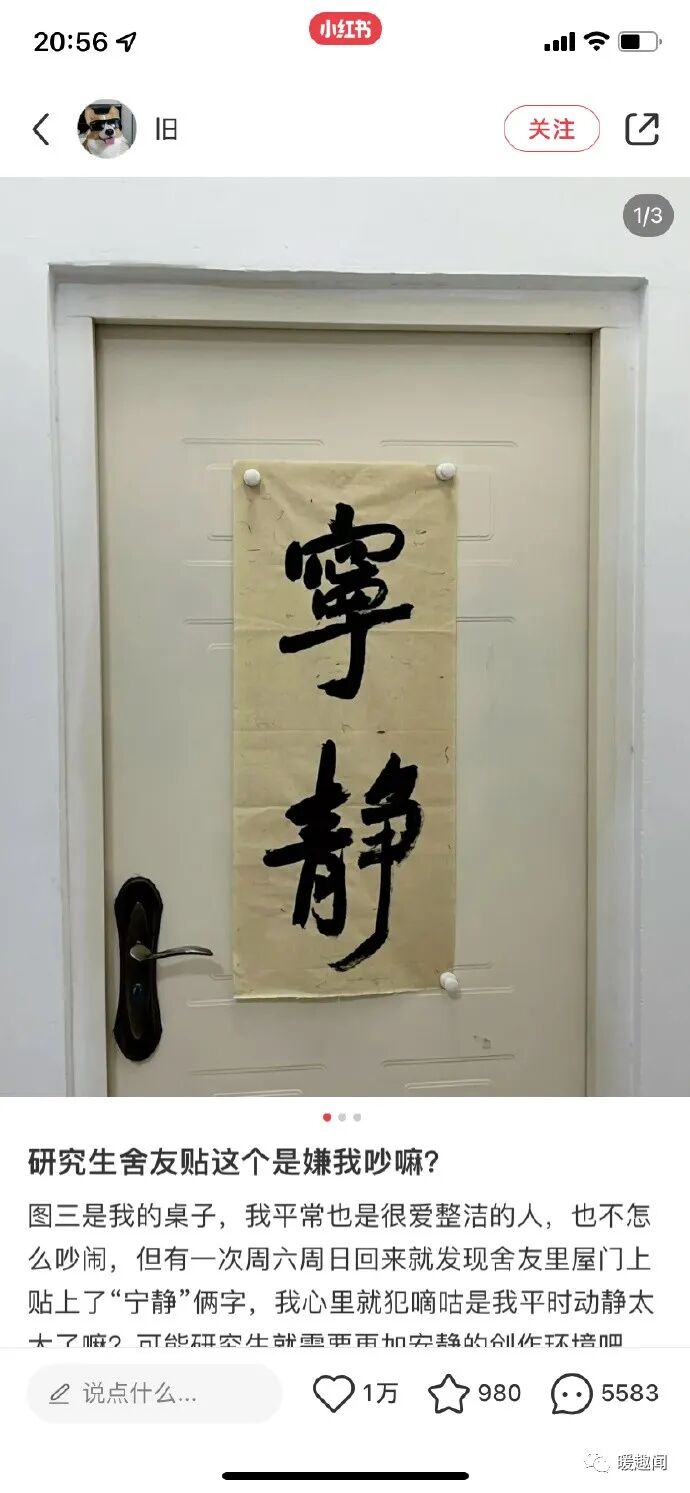 20:56
小红书
旧
关注
1/3
寧
靜
研究生舍友贴这个是嫌我吵嘛?
图三是我的桌子，我平常也是很爱整洁的人，也不怎
么吵闹，但有一次周六周日回来就发现舍友里屋门上
贴上了“宁静”俩字，我心里就犯嘀咕是我平时动静太
大了嘛？可能研究生就需要更加安静的创作环境吧
说点什么...
1万
980
5583
暖趣闻